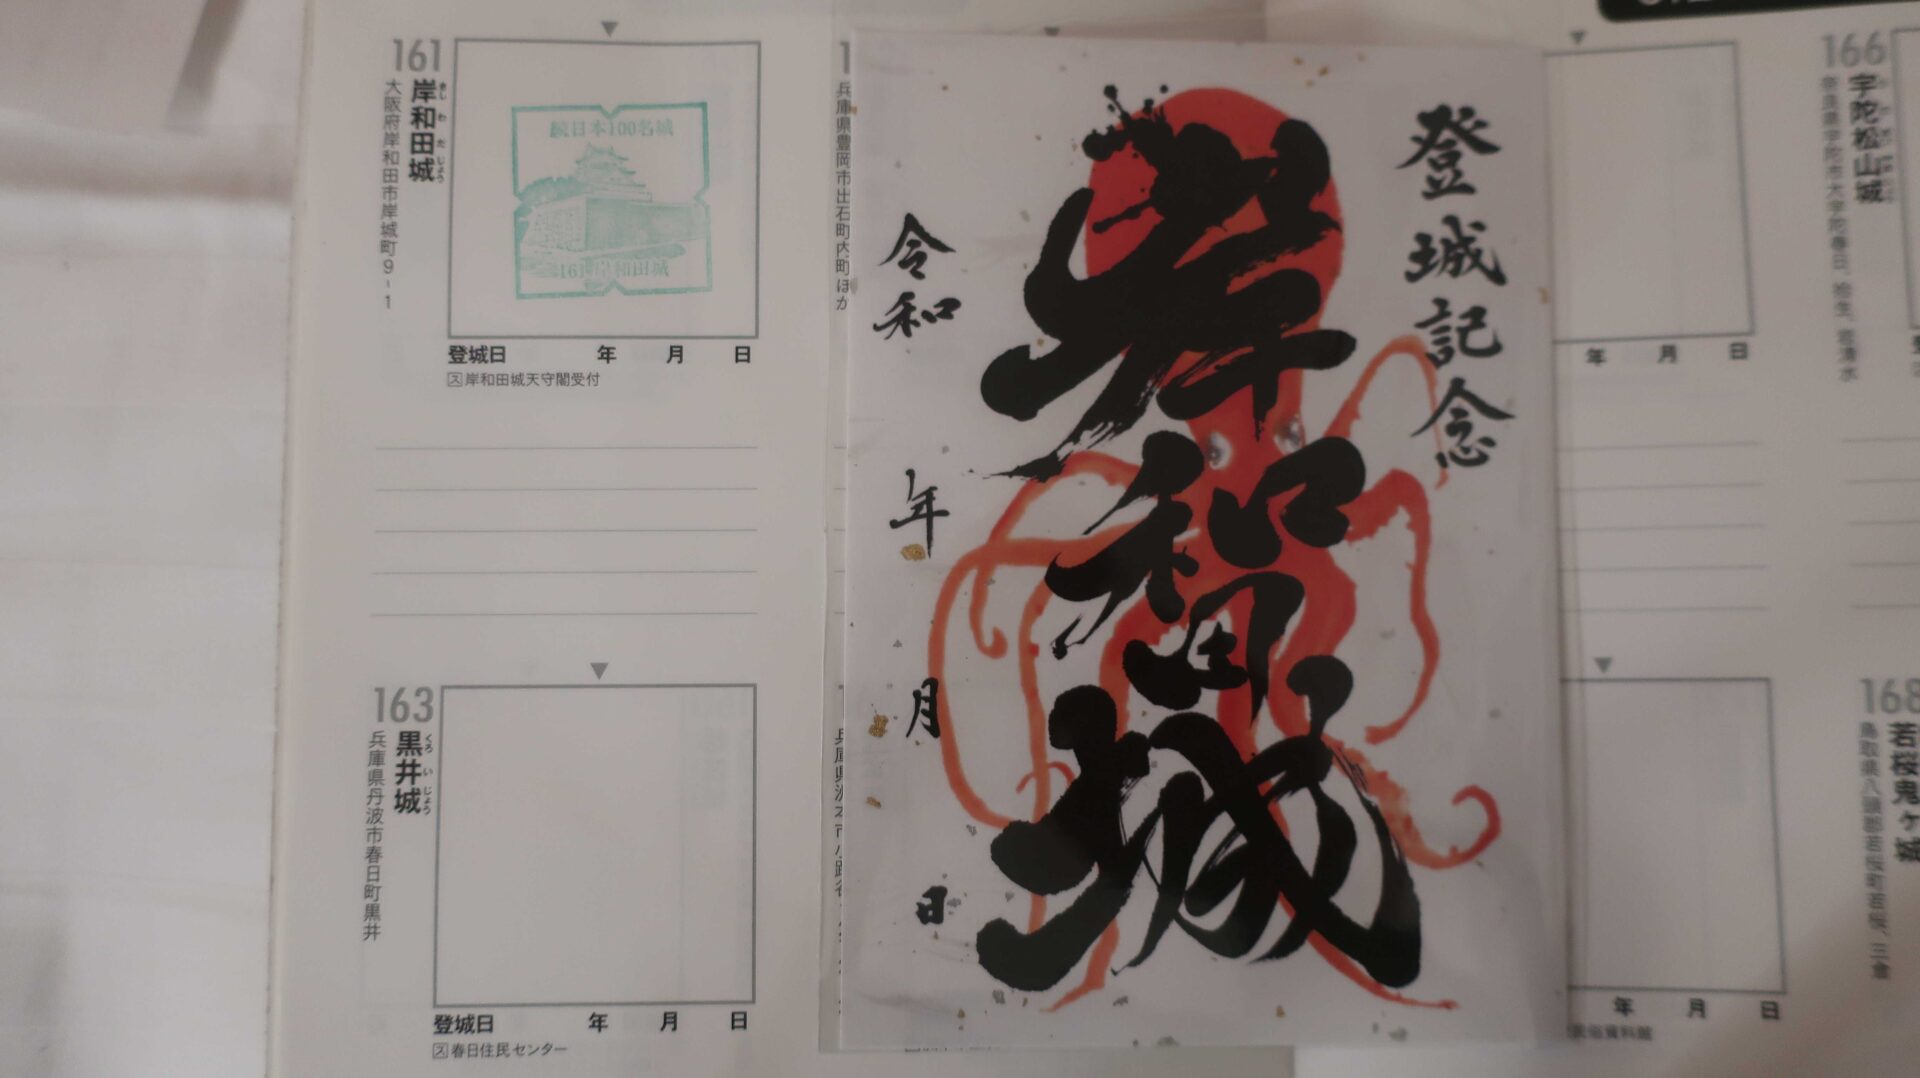 161
岸和田城
きしわだじょう
大阪府岸和田市岸城町9-1
続日本100名城
161 岸和田城
登城日 年 月 日
ス 岸和田城天守閣受付
163
黒井城
くろいじょう
兵庫県丹波市春日町黒井
登城日 年 月 日
ス 春日住民センター
兵庫県豊岡市出石町内町ほか
登城記念
岸和田城
令和 年 月 日
166
宇陀松山城
年 月 日
168
若桜鬼ヶ城
鳥取県八頭郡若桜町若桜、三倉
年 月 日